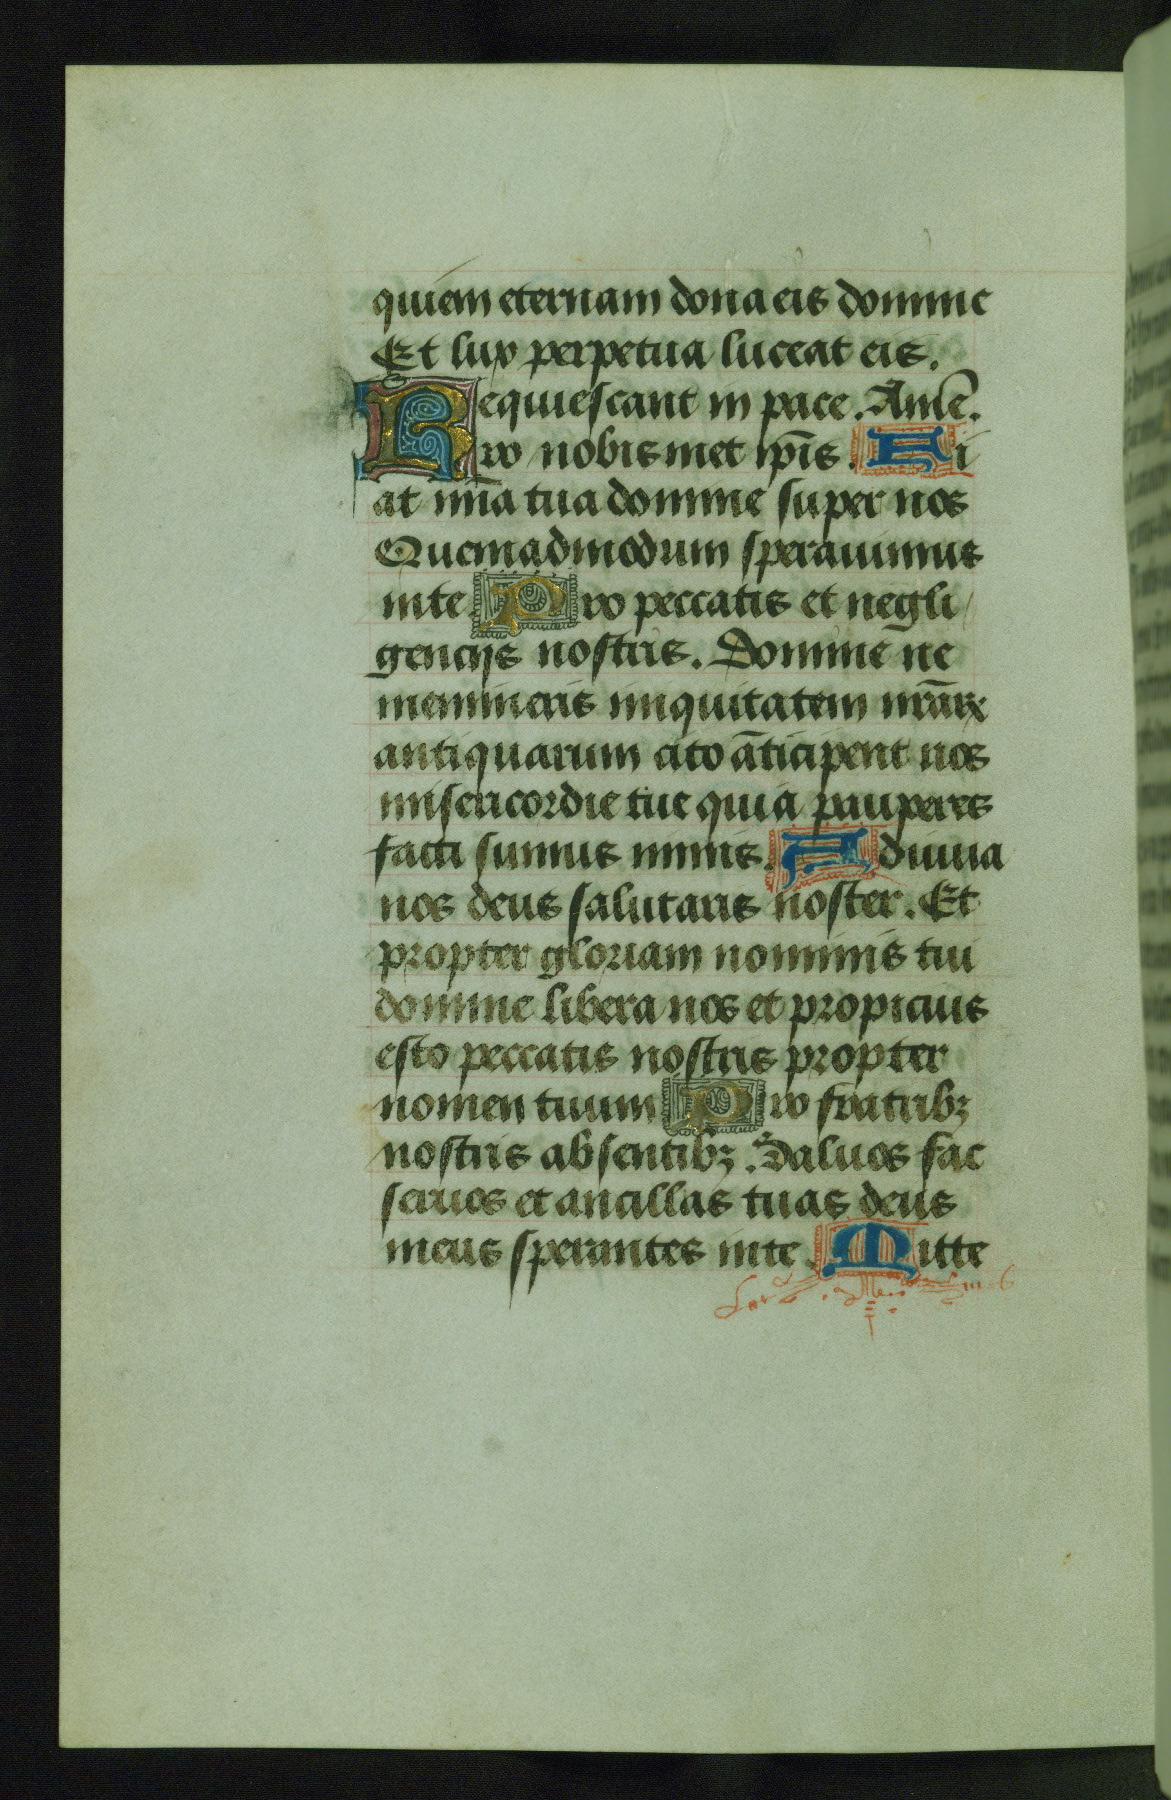 quiem eternam dona eis domine
Et lux perpetua luceat eis.
Requiescant in pace. Amē.
Pro nobismet ip̄is. Fi
at mīa tua domine super nos
Quemadmodum sperauimus
in te. Pro peccatis et negli
gencijs nostris. Domine ne
memineris iniquitatem nr̄aꝝ
antiquarum cito āticipent nos
misericordie tue quia pauperes
facti sumus nimis. Adiuua
nos deus salutaris noster. Et
propter gloriam nominis tui
domine libera nos et propicius
esto peccatis nostris propter
nomen tuum Pro fratribꝫ
nostris absentibꝫ. Saluos fac
seruos et ancillas tuas deus
meus sperantes in te. Mitte